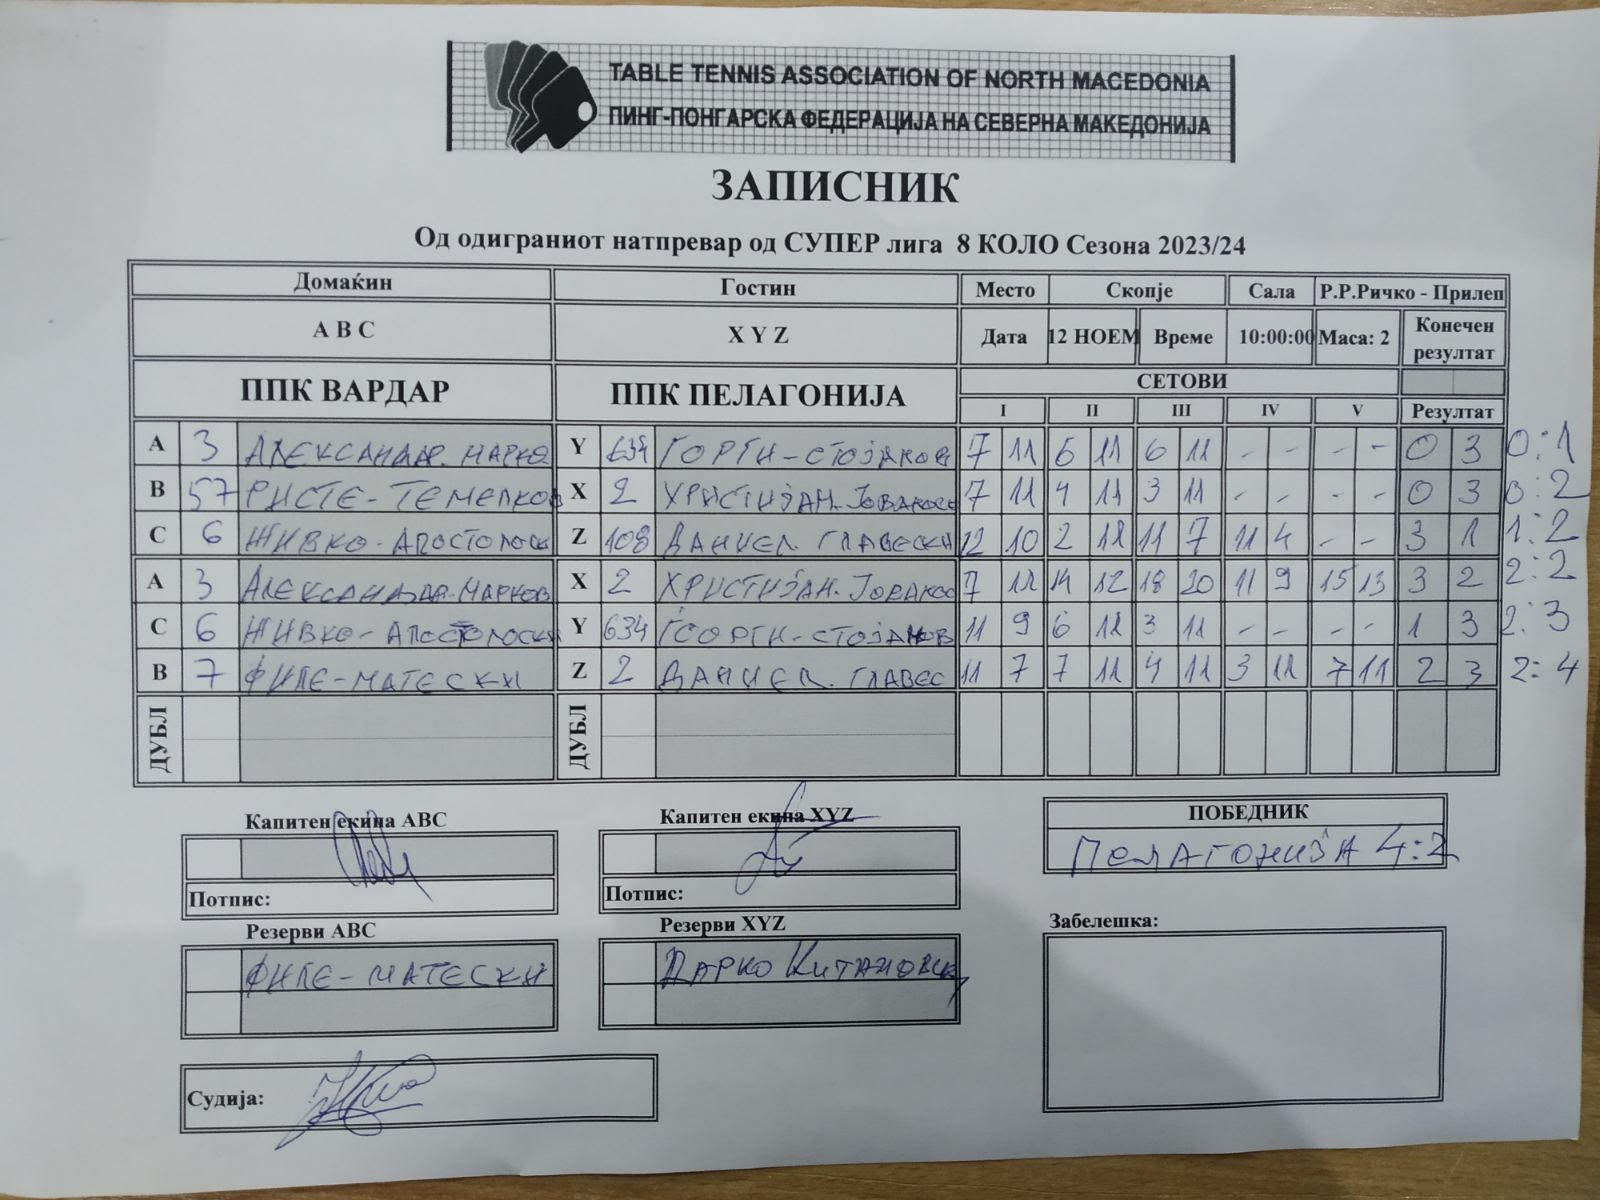 TABLE TENNIS ASSOCIATION OF NORTH MACEDONIA
ПИНГ-ПОНГАРСКА ФЕДЕРАЦИЈА НА СЕВЕРНА МАКЕДОНИЈА
ЗАПИСНИК
Од одиграниот натпревар од СУПЕР лига 8 КОЛО Сезона 2023/24
Домаќин Гостин Место Скопје Сала Р.Р.Ричко - Прилеп
A B C X Y Z Дата 12 НОЕМ Време 10:00:00 Маса: 2 Конечен резултат
ППК ВАРДАР ППК ПЕЛАГОНИЈА СЕТОВИ
I II III IV V Резултат
A 3 АЛЕКСАНДАР. МАРКО Y 634 ЃОРГИ-СТОЈАНОВ 7 11 6 11 6 11 - - - - 0 3 0:1
B 57 РИСТЕ-ТЕМЕЛКОВ X 2 ХРИСТИЈАН. 7 11 4 11 3 11 - - - - 0 3 0:2
C 6 ЖИВКО-АПОСТОЛОСК Z 108 ДАНИЕЛ ГЛАВЕСКИ 12 10 2 11 11 7 11 4 - - 3 1 1:2
A 3 АЛЕКСАНДАР-МАРКОВ X 2 ХРИСТИЈАН. 7 11 14 12 18 20 11 9 15 13 3 2 2:2
C 6 ЖИВКО-АПОСТОЛОСКИ Y 634 ЃОРГИ-СТОЈАНОВ 11 9 6 11 3 11 - - - - 1 3 2:3
B 7 ФИЛЕ-МАТЕСКИ Z 2 ДАНИЕЛ. ГЛАВЕС 11 7 7 11 4 11 3 11 7 11 2 3 2:4
ДУБЛ ДУБЛ
Капитен екипа ABC Капитен екипа XYZ ПОБЕДНИК
ПЕЛАГОНИЈА 4:2
Потпис: Потпис:
Резерви ABC Резерви XYZ Забелешка:
ФИЛЕ-МАТЕСКИ ДАРКО
Судија: